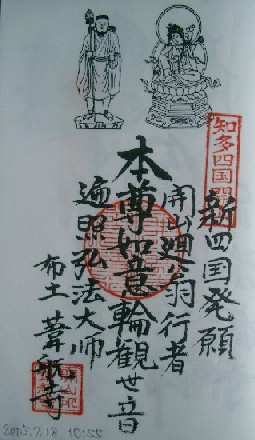 知多四国開
新四国発願
開山廻公羽行者
本尊如意輪観世音
遍照弘法大師
布土 葦航寺
2015.7.18 10:55